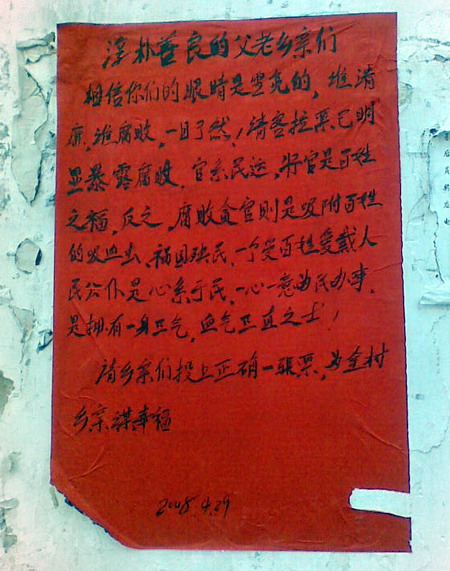 淳朴善良的父老乡亲们
相信你们的眼睛是雪亮的，谁清
廉，谁腐败，一目了然！请客拉票已明
显暴露腐败．官系民运，好官是百姓
之福，反之，腐败贪官则是吸附百姓
的吸血虫、祸国殃民．一个受百姓爱戴人
民公仆是心系于民．一心一意为民办事．
是拥有一身正气，血气正直之士！
请乡亲们投上正确一张票，为全村
乡亲谋幸福
2008.4.29